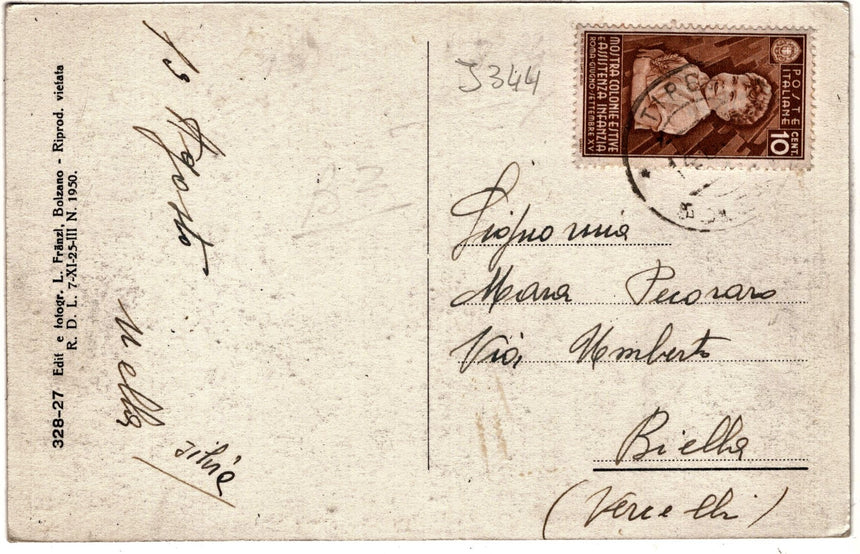 328-27 Edit e fotogr. L. Fränzl, Bolzano - Riprod. vietata
R. D. L. 7-XI-25-III N. 1950.
13 Agosto
Nella
Silvia
J344
POSTE
ITALIANE
CENT.
10
MOSTRA COLONIE ESTIVE
E ASSISTENZA INFANZIA
ROMA-GIUGNO/SETTEMBRE XV
Signorina
Mara Pecoraro
Via Umberto
Biella
(Vercelli)